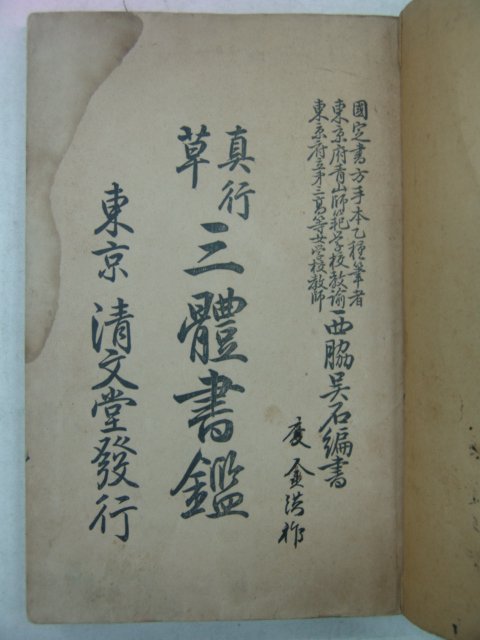 國定書方手本乙種筆者
東京府青山師範学校教諭
東京府立第三高等女学校教師
西脇呉石編書
金洪祚
真行
草
三體書鑑
東京 清文堂發行